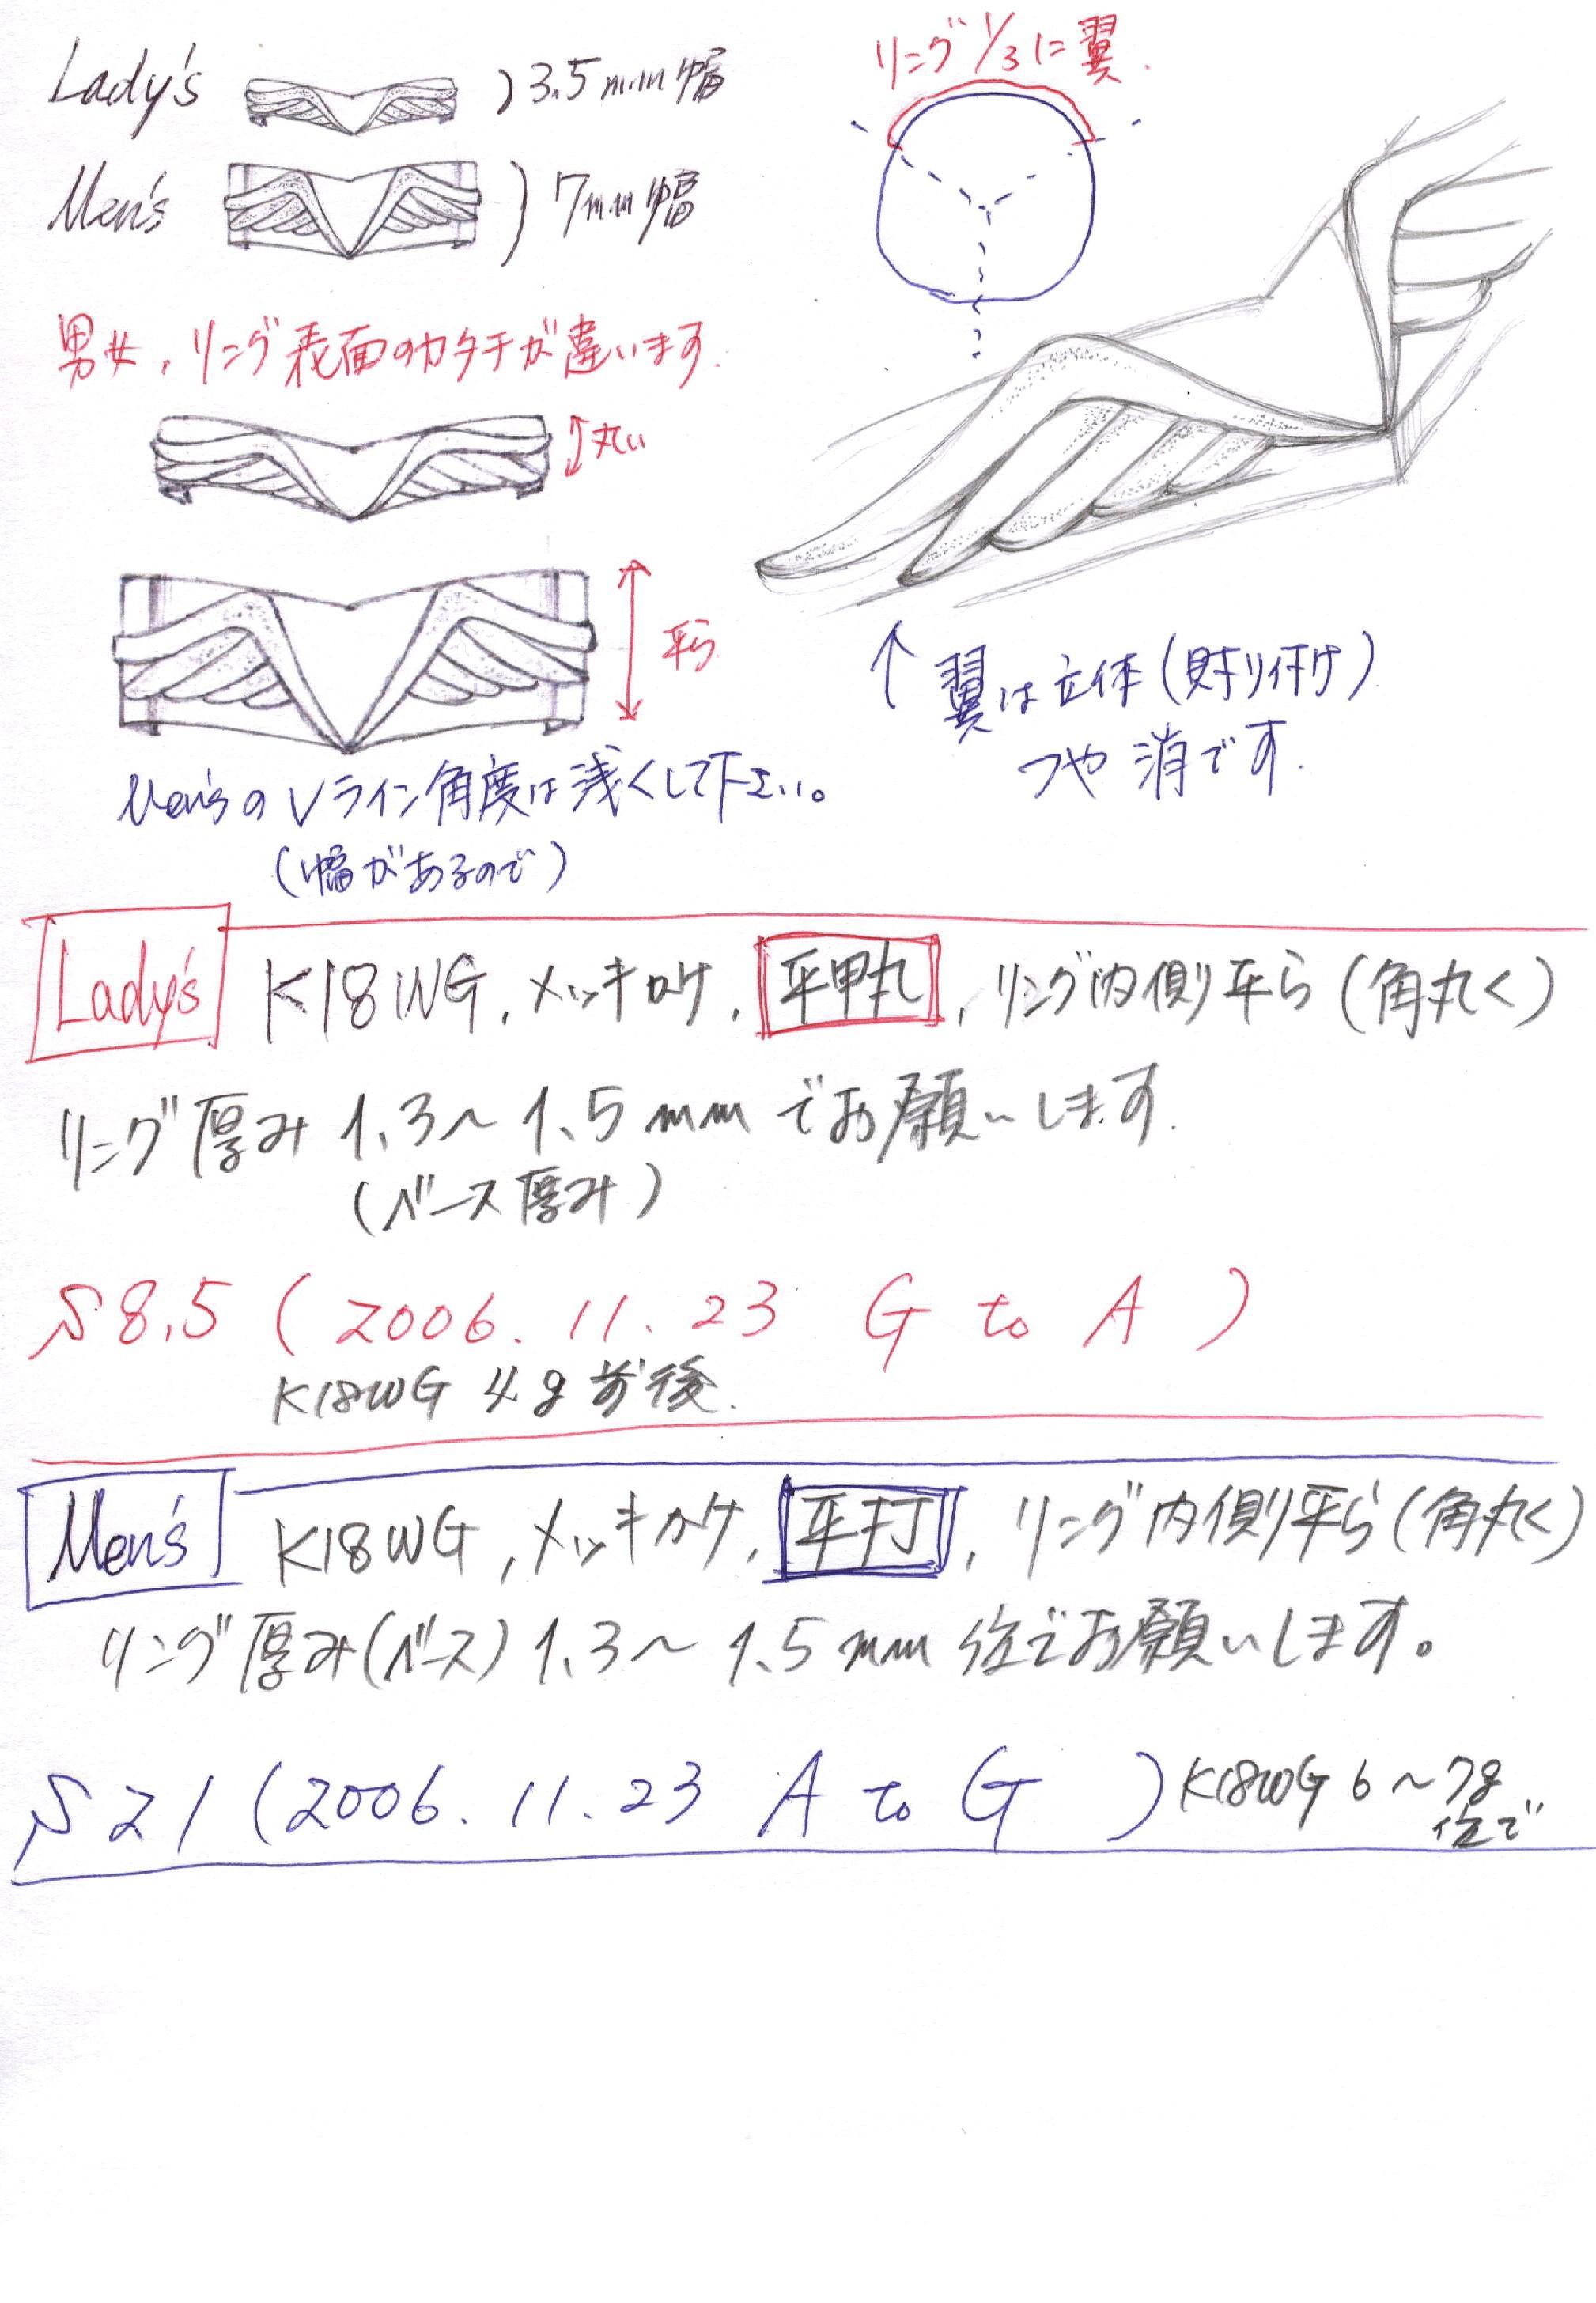 Lady's 3.5mm幅
Men's 7mm幅
リング1/3に翼.
男女,リング表面のカタチが違います.
丸い
平ら
Men'sのVライン角度は浅くして下さい。
(幅があるので)
↑翼は立体(貼り付け)
つや消です.
Lady's K18WG,メッキかけ,平甲丸,リング内側平ら(角丸く)
リング厚み1.3~1.5mmでお願いします.
(ベース厚み)
S8.5(2006.11.23 G to A)
K18WG 4g前後.
Men's K18WG,メッキかけ,平打,リング内側平ら(角丸く)
リング厚み(ベース)1.3~1.5mm位でお願いします。
S21(2006.11.23 A to G)K18WG 6~7g
位で